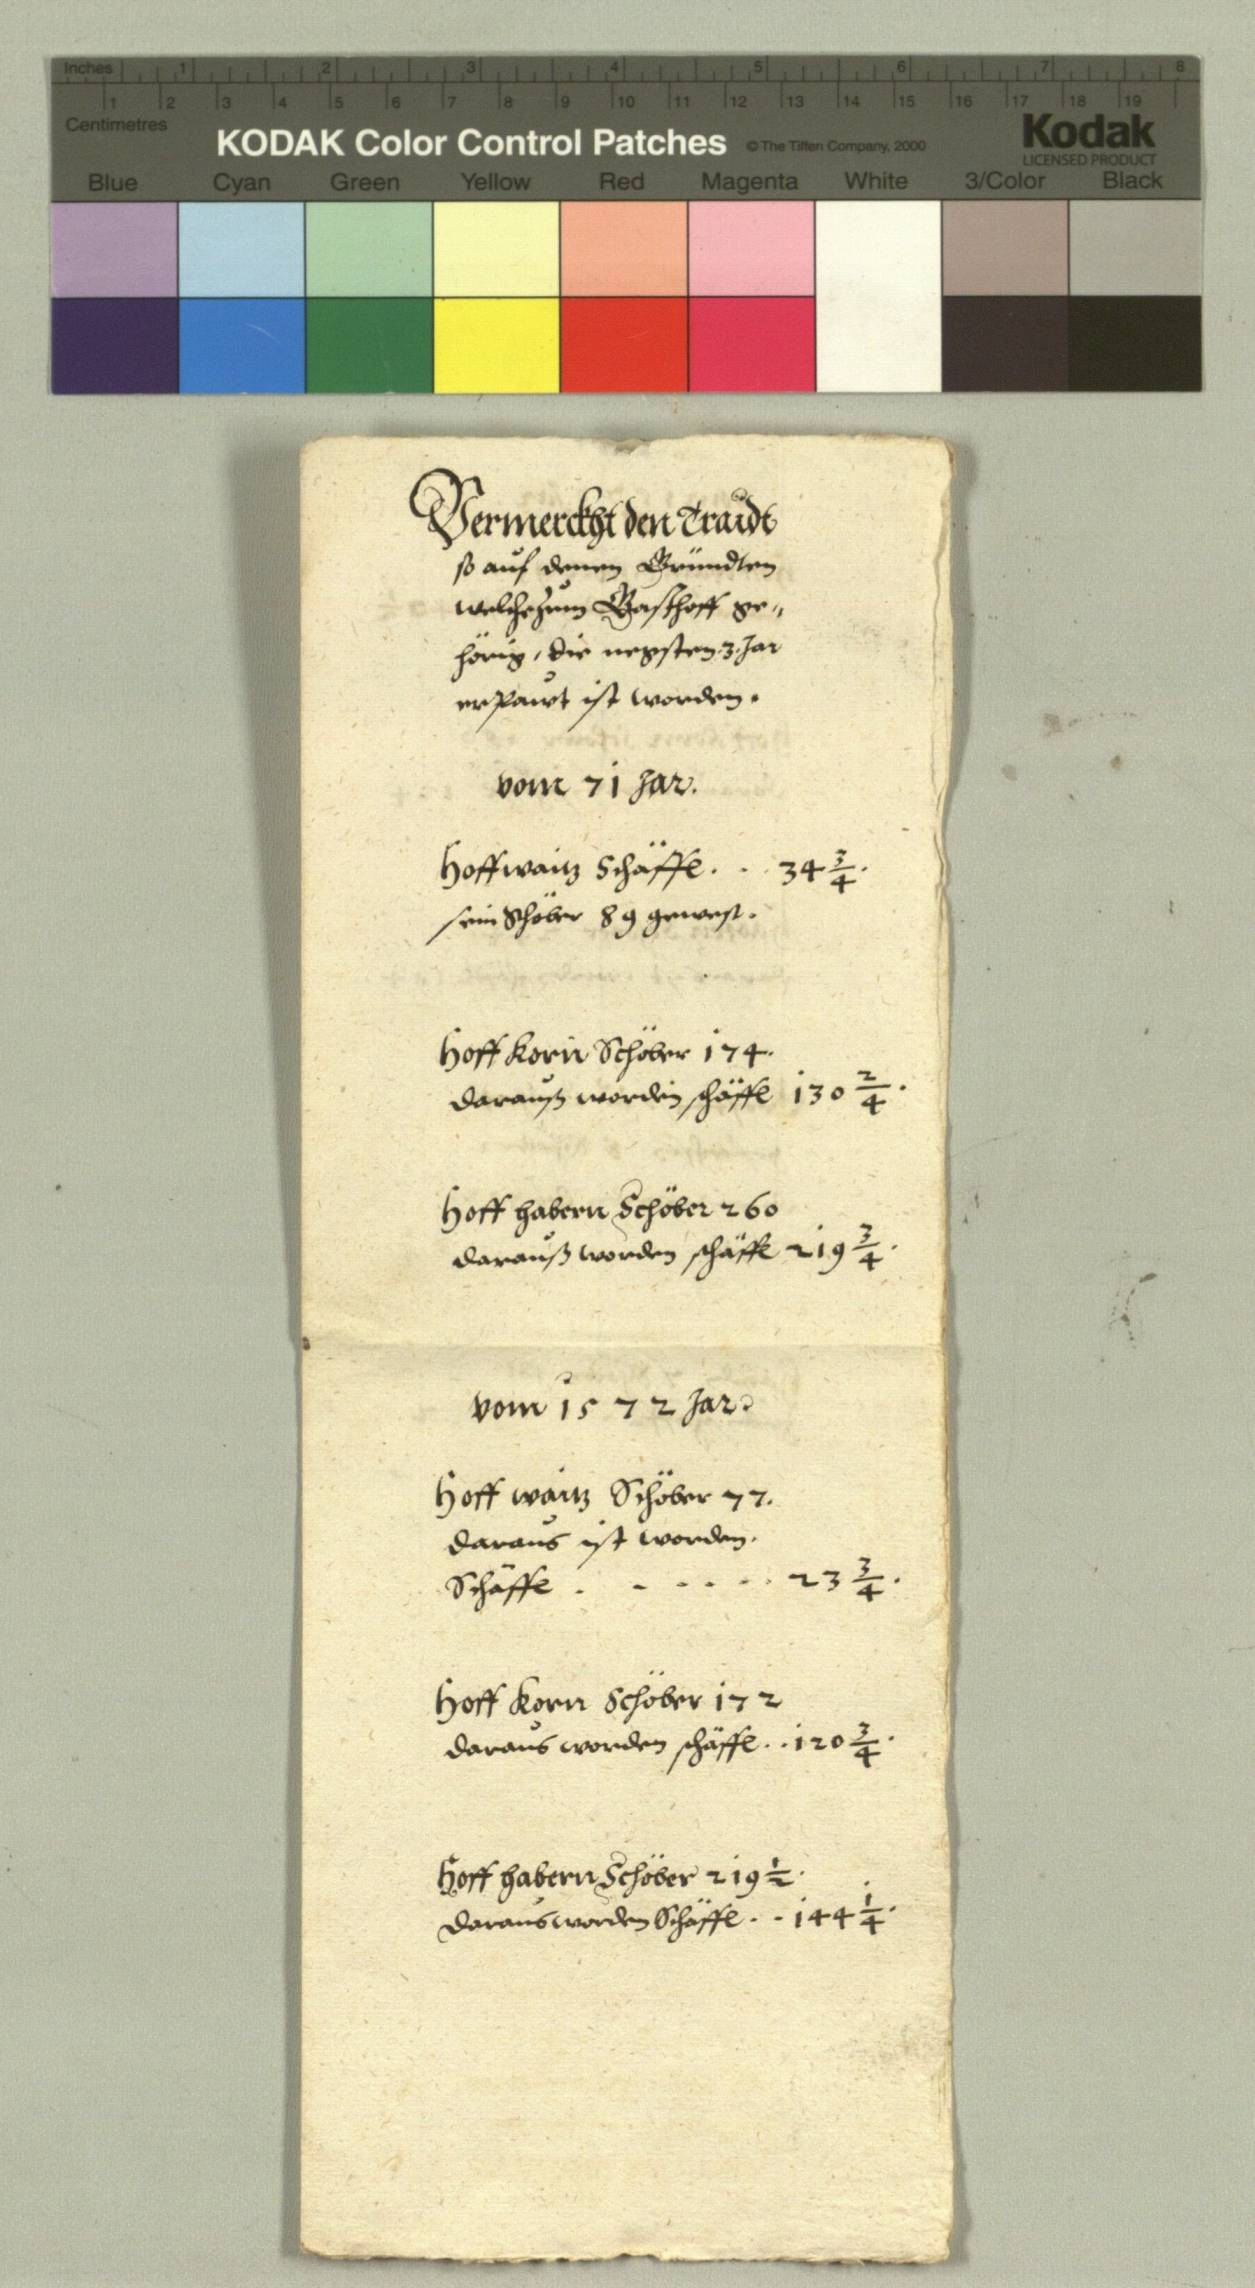 Inches 1 2 3 4 5 6 7 8
1 2 3 4 5 6 7 8 9 10 11 12 13 14 15 16 17 18 19
Centimetres
KODAK Color Control Patches © The Tiffen Company, 2000 Kodak
LICENSED PRODUCT
Blue Cyan Green Yellow Red Magenta White 3/Color Black
Vermerckht den Traidt
so auf denen Gründten
welche zum Gasthoff ge-
hörig, die negsten 3. Jar
erpawt ist worden.
vom 71 Jar.
Hoffwaitz Schäffl . . . 34 3/4.
sein Schöber 89 gewest.
Hoff korn Schöber 174.
darauß worden schäffl 130 2/4.
Hoff habern Schöber 260
darauß worden schäffl 219 3/4.
vom 1572 Jar.
Hoff waitz Schöber 77.
daraus ist worden.
Schäffl . . . . . . 23 3/4.
Hoff korn Schöber 172
daraus worden schäffl . . 120 3/4.
Hoff habern Schöber 219 1/2.
daraus worden Schäffl . . 144 1/4.